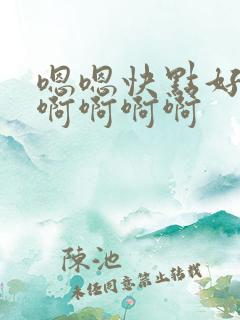 嗯嗯快點好
啊啊啊啊
陳池
未經同意禁止轉載